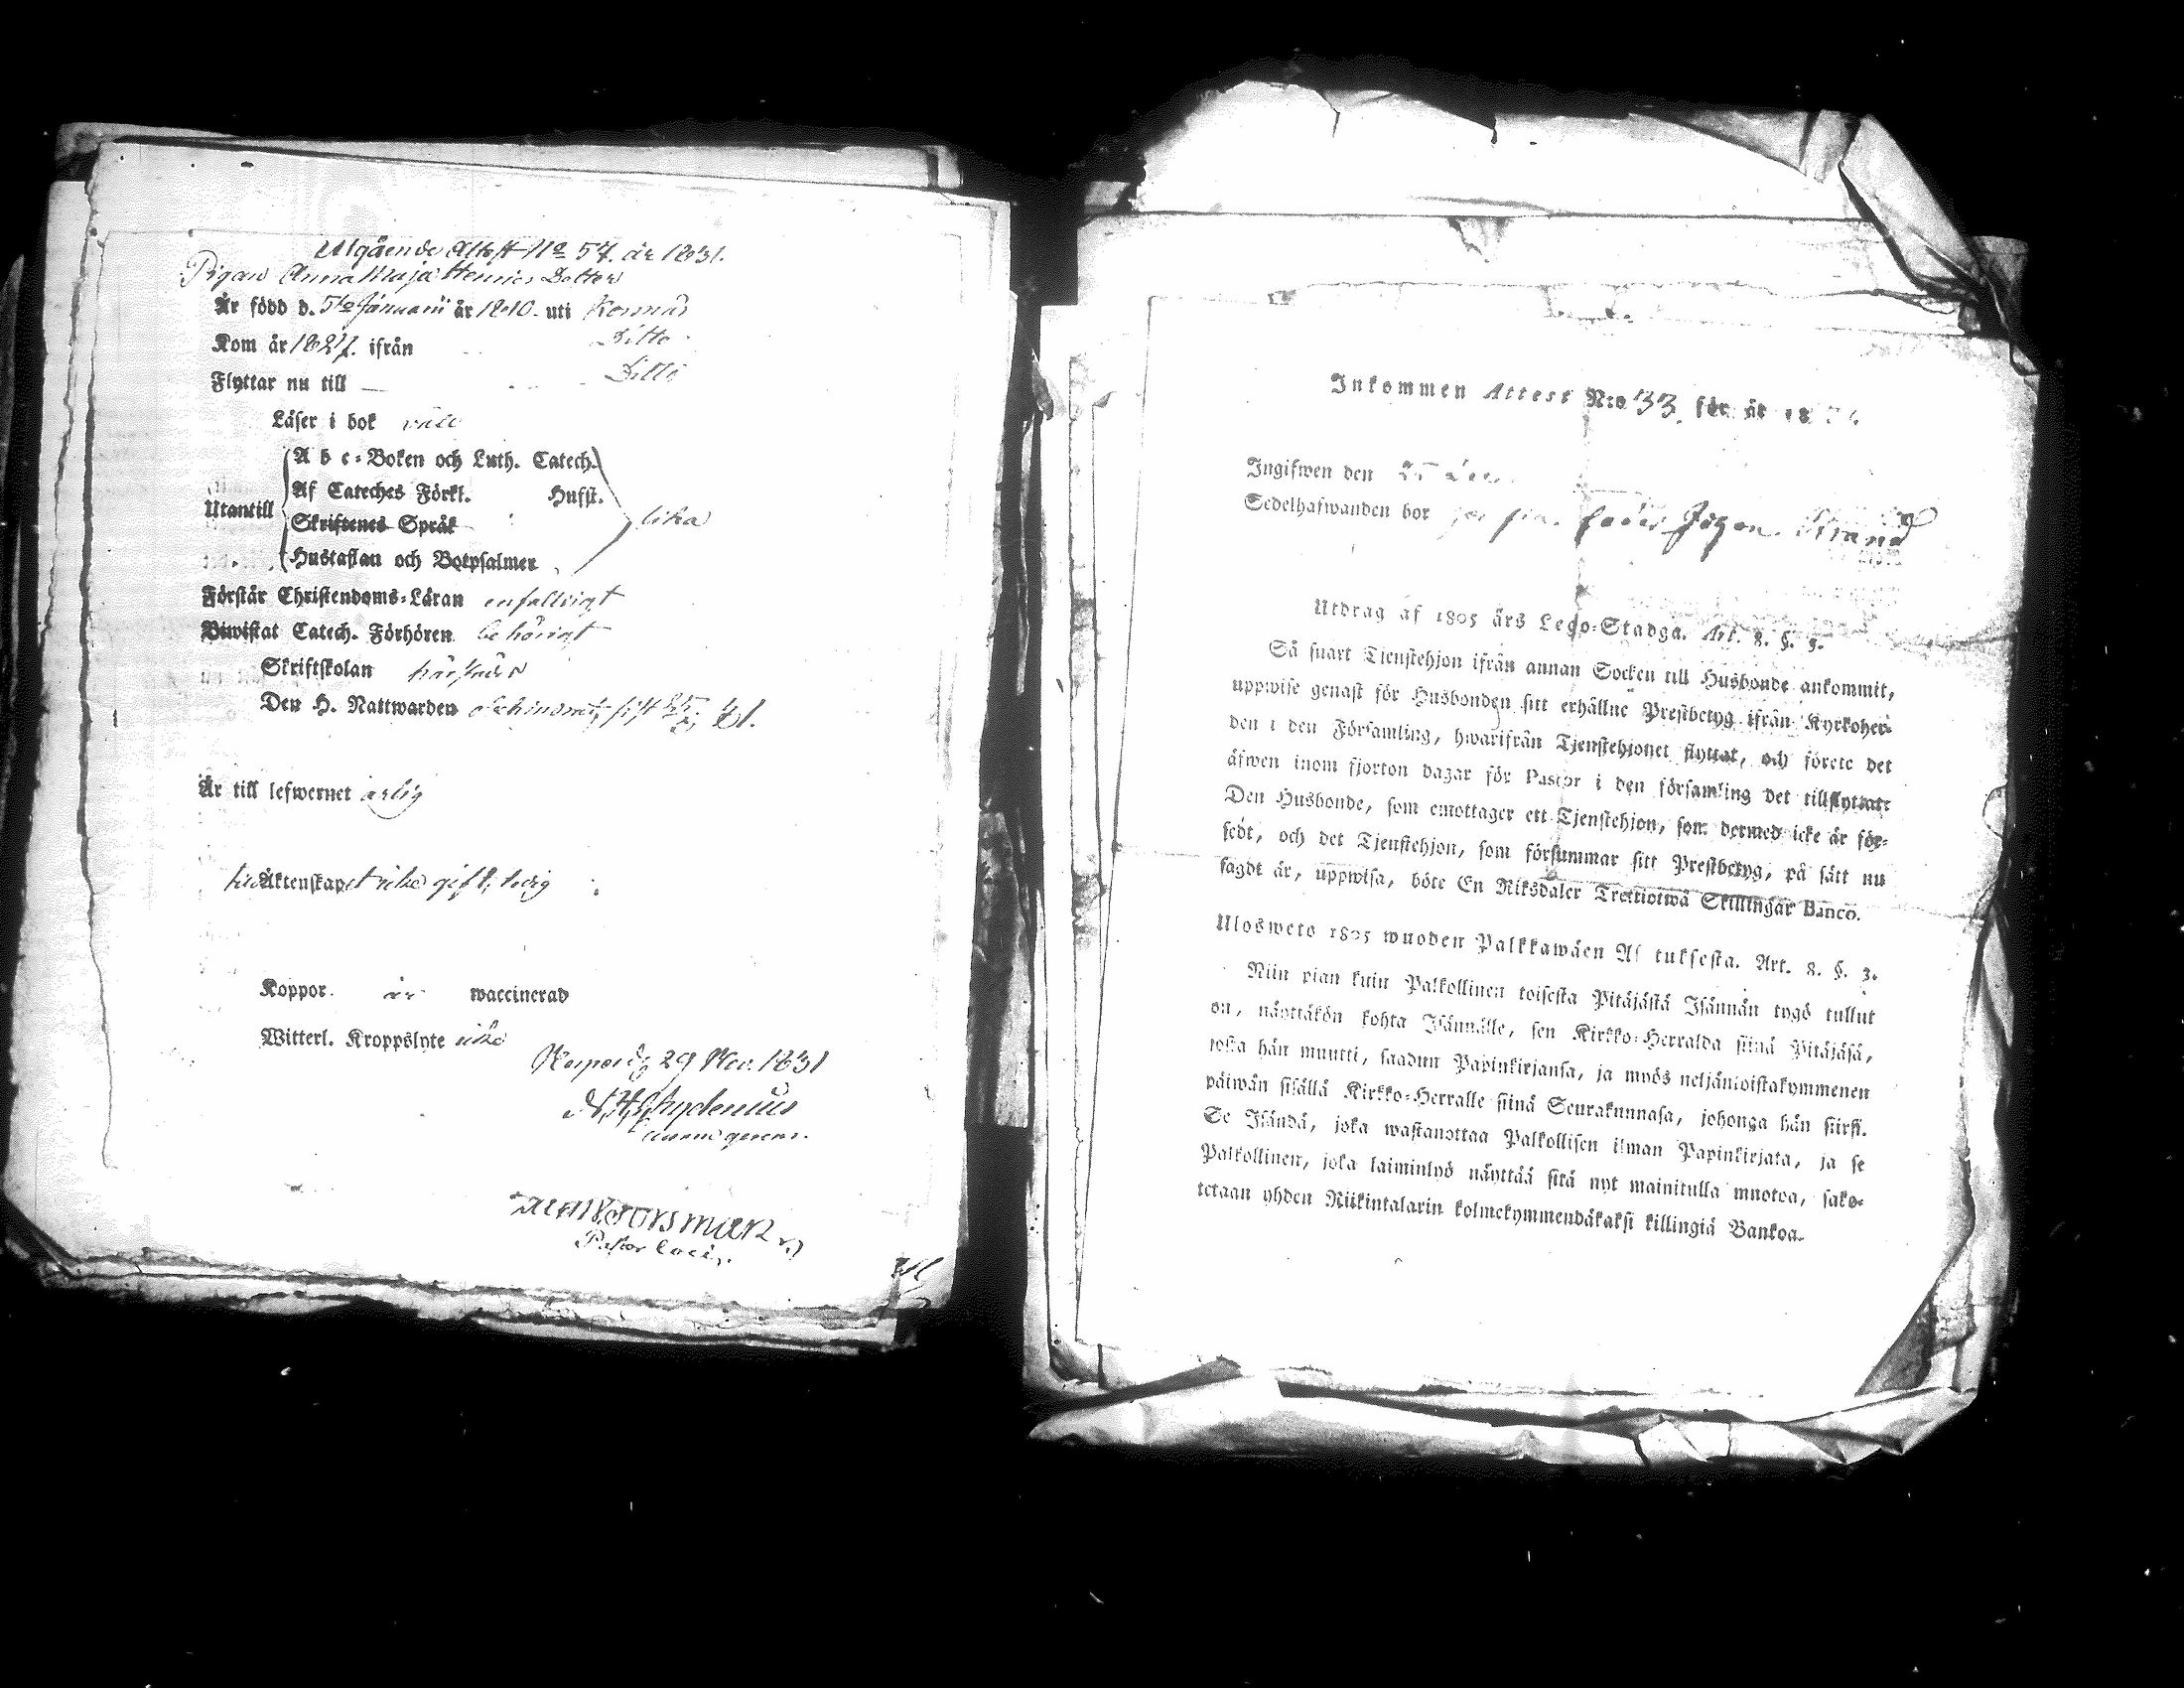 Utgående Attest No 57. år 1831.
Pigan Anna Maja Henrics Dotter
Är född d. 5te Januarii år 1810. uti
Kom år 1827. ifrån Ditto
Flyttar nu till Ditto
Läser i bok
A b c-Boken och Luth. Catech.
Af Cateches Förkl. Husst.
Utantill
Skriftenes Språk
lika
Hustaflan och Botpsalmer
Förstår Christendoms-Läran enfalldigt
Biwistat Catech. Förhören behörigt
Skriftskolan
Den H. Nattwarden
Är till lefwernet ärlig
till Äktenskapet icke gift, ledig
Koppor är waccinerad
Witterl. Kroppslyte icke
29 Nov. 1831
Pastor loci.
Inkommen Attest N:o 33. för år 18
Ingifwen den
Sedelhafwanden bor Strand
Utdrag af 1805 års Lego-Stadga. Art. 8. §. 3.
Så snart Tjenstehjon ifrån annan Socken till Husbonde ankommit,
uppwise genast för Husbonden sitt erhållne Prestbetyg ifrån Kyrkoher-
den i den Församling, hwarifrån Tjenstehjonet flyttat, och förete det
äfwen inom fjorton dagar för Pastor i den församling det tillflyttatt
Den Husbonde, som emottager ett Tjenstehjon, som dermed icke är för-
sedt, och det Tjenstehjon, som försummar sitt Prestbetyg, på sätt nu
sagdt är, uppwisa, böte En Riksdaler Trettiotwå Skillingar Banco.
Ulosweto 1805 wuoden Palkkawäen Asetuksesta. Art. 8. §. 3.
Niin pian kuin Palkollinen toisesta Pitäjästä Isännän tygö tullut
on, näyttäkön kohta Isännälle, sen Kirkko-Herralda siinä Pitäjäsä,
josta hän muutti, saadun Papinkirjansa, ja myös neljäntoistakymmenen
päiwän sisällä Kirkko-Herralle siinä Seurakunnasa, johonga hän siirsi.
Se Isändä, joka wastanottaa Palkollisen ilman Papinkirjata, ja se
Palkollinen, joka laiminlyö näyttää sitä nyt mainitulla muotoa, sako-
tetaan yhden Riikintalarin kolmekymmendäkaksi killingiä Bankoa.